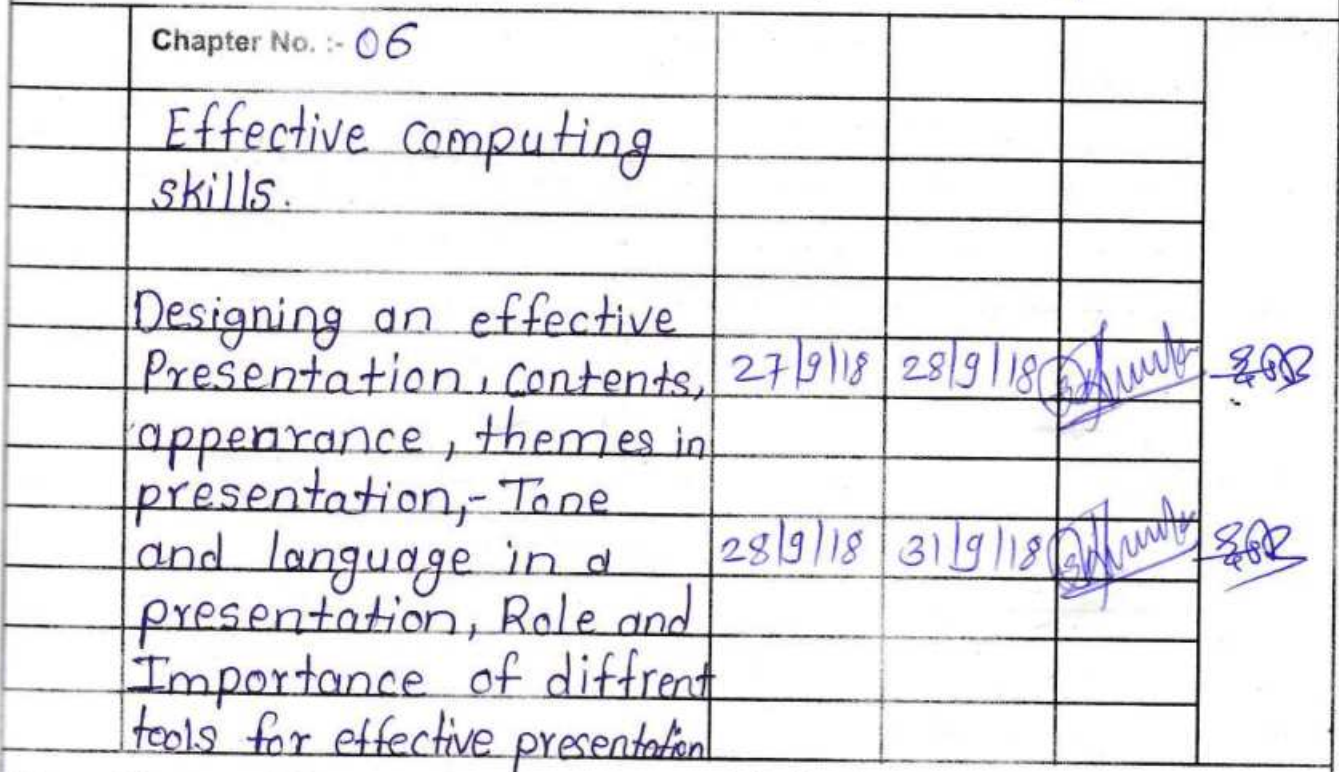 Chapter No. :- 06
Effective computing
skills.
Designing an effective
Presentation, contents, 27/9/18 28/9/18
appearance, themes in
presentation,- Tone
and language in a 28/9/18 31/9/18
presentation, Role and
Importance of diffrent
tools for effective presentation